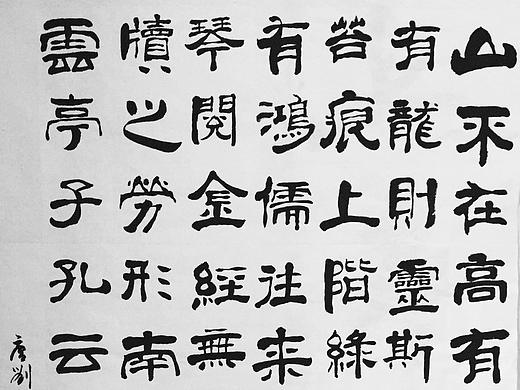 山不在高有
有龍則靈斯
苔痕上階綠
有鴻儒往来
琴閱金經無
牘之勞形南
雲亭子孔云